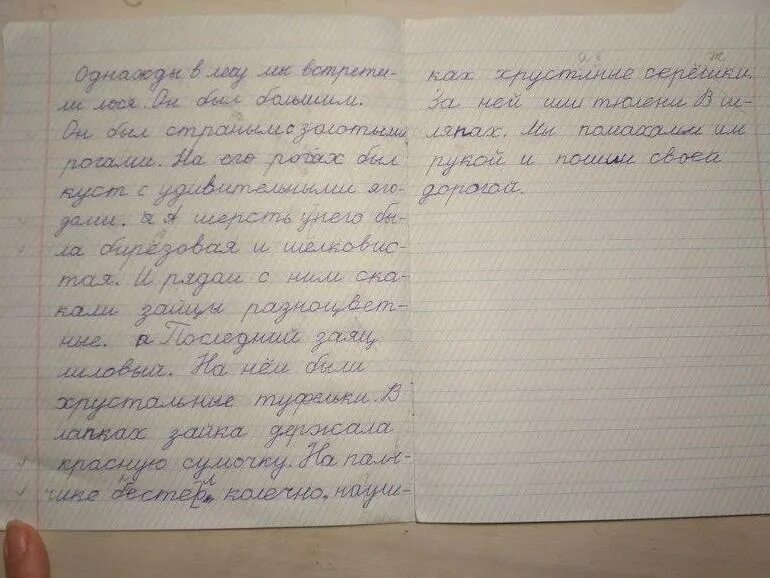 Однажды в лесу мы встрети-
ли лося. Он был большим.
Он был страным с золотыми
рогами. На его рогах был
куст с удивительными яго-
дами. а А шерсть у него бы-
ла бирёзовая и шелковис-
тая. И рядом с ним ска-
кали зайцы разноцвет-
ные. а Последний заяц
лиловый. На нём были
хрустальные туфельки. В
лапках зайка держала
красную сумочку. На паль-
чике колечно, науш-
ках хрустлные серёшки.
За ней шли тюлени В ш-
ляпах. Мы помахали им
рукой и пошли своей
дорогой.